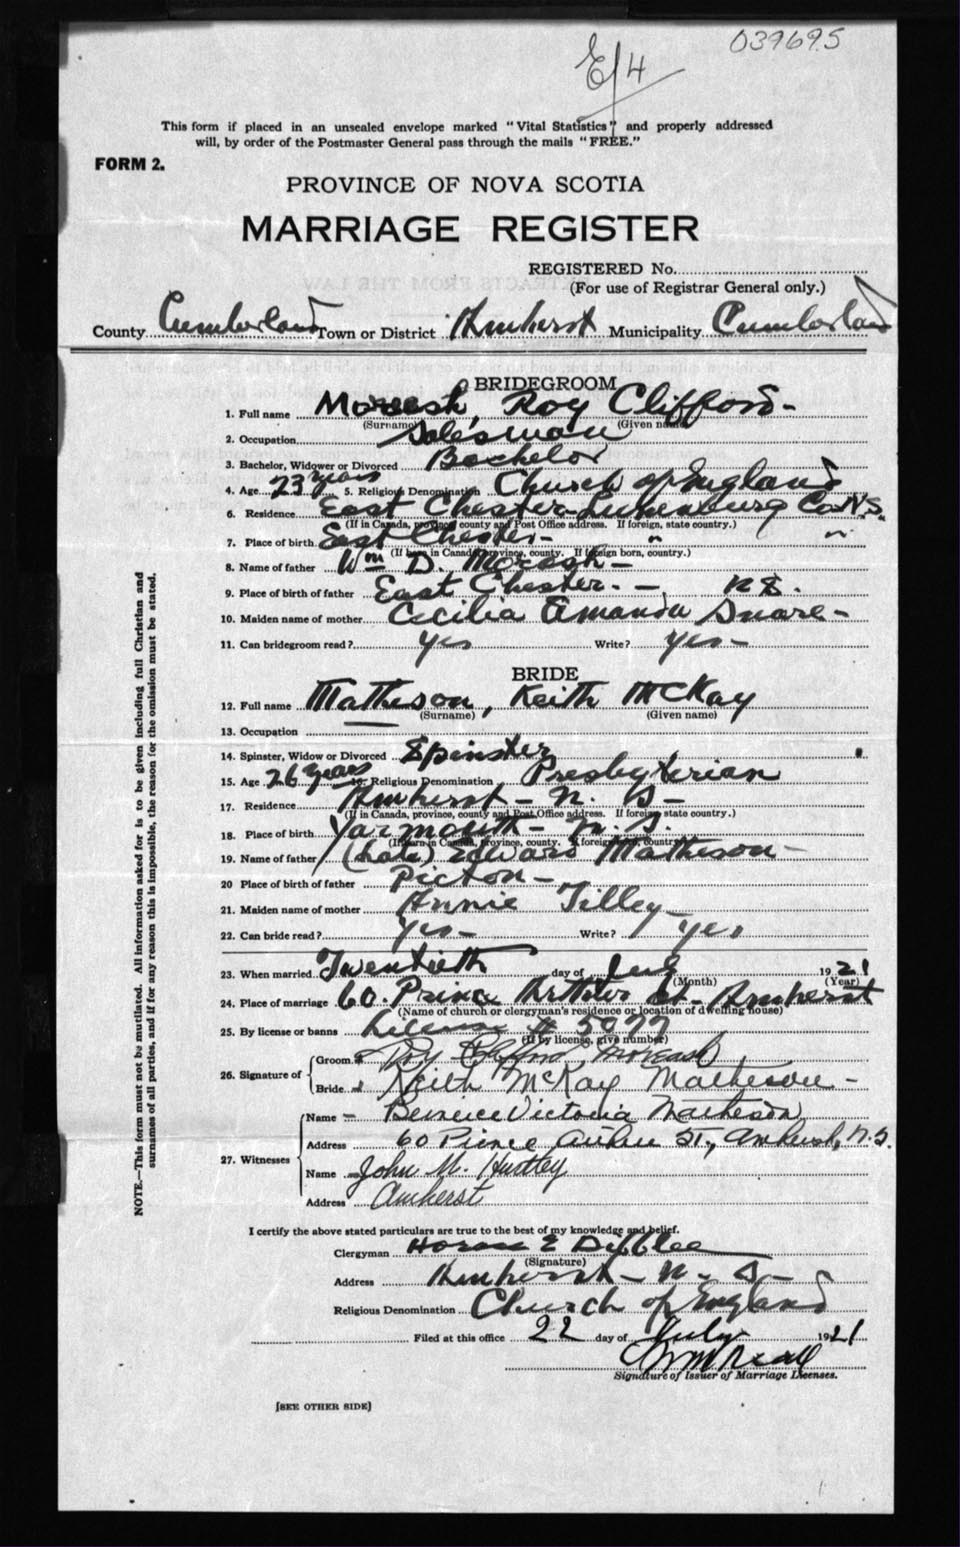 E/4
039695
This form if placed in an unsealed envelope marked "Vital Statistics" and properly addressed
will, by order of the Postmaster General pass through the mails "FREE."
FORM 2.
PROVINCE OF NOVA SCOTIA
MARRIAGE REGISTER
REGISTERED No.
(For use of Registrar General only.)
County Cumberland Town or District Amherst Municipality Cumberland
BRIDEGROOM
1. Full name Moreash, Roy Clifford-
(Surname) (Given name)
2. Occupation Salesman
3. Bachelor, Widower or Divorced Bachelor
4. Age 23 years 5. Religious Denomination Church of England
6. Residence East Chester-Lunenburg Co. N.S.
(If in Canada, province, county and Post Office address. If foreign, state country.)
7. Place of birth East Chester- " "
(If born in Canada, province, county. If foreign born, country.)
8. Name of father Wm D. Moreash-
9. Place of birth of father East Chester. - N S.
10. Maiden name of mother Cecilia Amanda Snare-
11. Can bridegroom read? Yes Write? Yes-
BRIDE
12. Full name Matheson, Keith McKay
(Surname) (Given name)
13. Occupation
14. Spinster, Widow or Divorced Spinster
15. Age 26 years 16. Religious Denomination Presbyterian
17. Residence Amherst- N. S-
(If in Canada, province, county and Post Office address. If foreign, state country.)
18. Place of birth Yarmouth- N. S.
(If born in Canada, province, county. If foreign born, country)
19. Name of father (Late) Edward Matheson-
20 Place of birth of father Picton-
21. Maiden name of mother Annie Tilley
22. Can bride read? Yes- Write? Yes
23. When married Twentieth day of July 1921
(Month) (Year)
24. Place of marriage 60. Prince Arthur St- Amherst
(Name of church or clergyman's residence or location of dwelling house)
25. By license or banns License # 5077
(If by license, give number)
26. Signature of
Groom Roy Clifford Moreash
Bride Keith McKay Matheson-
27. Witnesses
Name Bernice Victoria Matheson
Address 60 Prince Arthur St., Amherst, N.S.
Name John M. Huntley
Address Amherst
I certify the above stated particulars are true to the best of my knowledge and belief.
Clergyman Horace E Dibblee
(Signature)
Address Amherst- N. S-
Religious Denomination Church of England
Filed at this office 22 day of July 1921
Signature of Issuer of Marriage Licenses.
[SEE OTHER SIDE]
NOTE.—This form must not be mutilated. All information asked for is to be given including full Christian and
surnames of all parties, and if for any reason this is impossible, the reason for the omission must be stated.